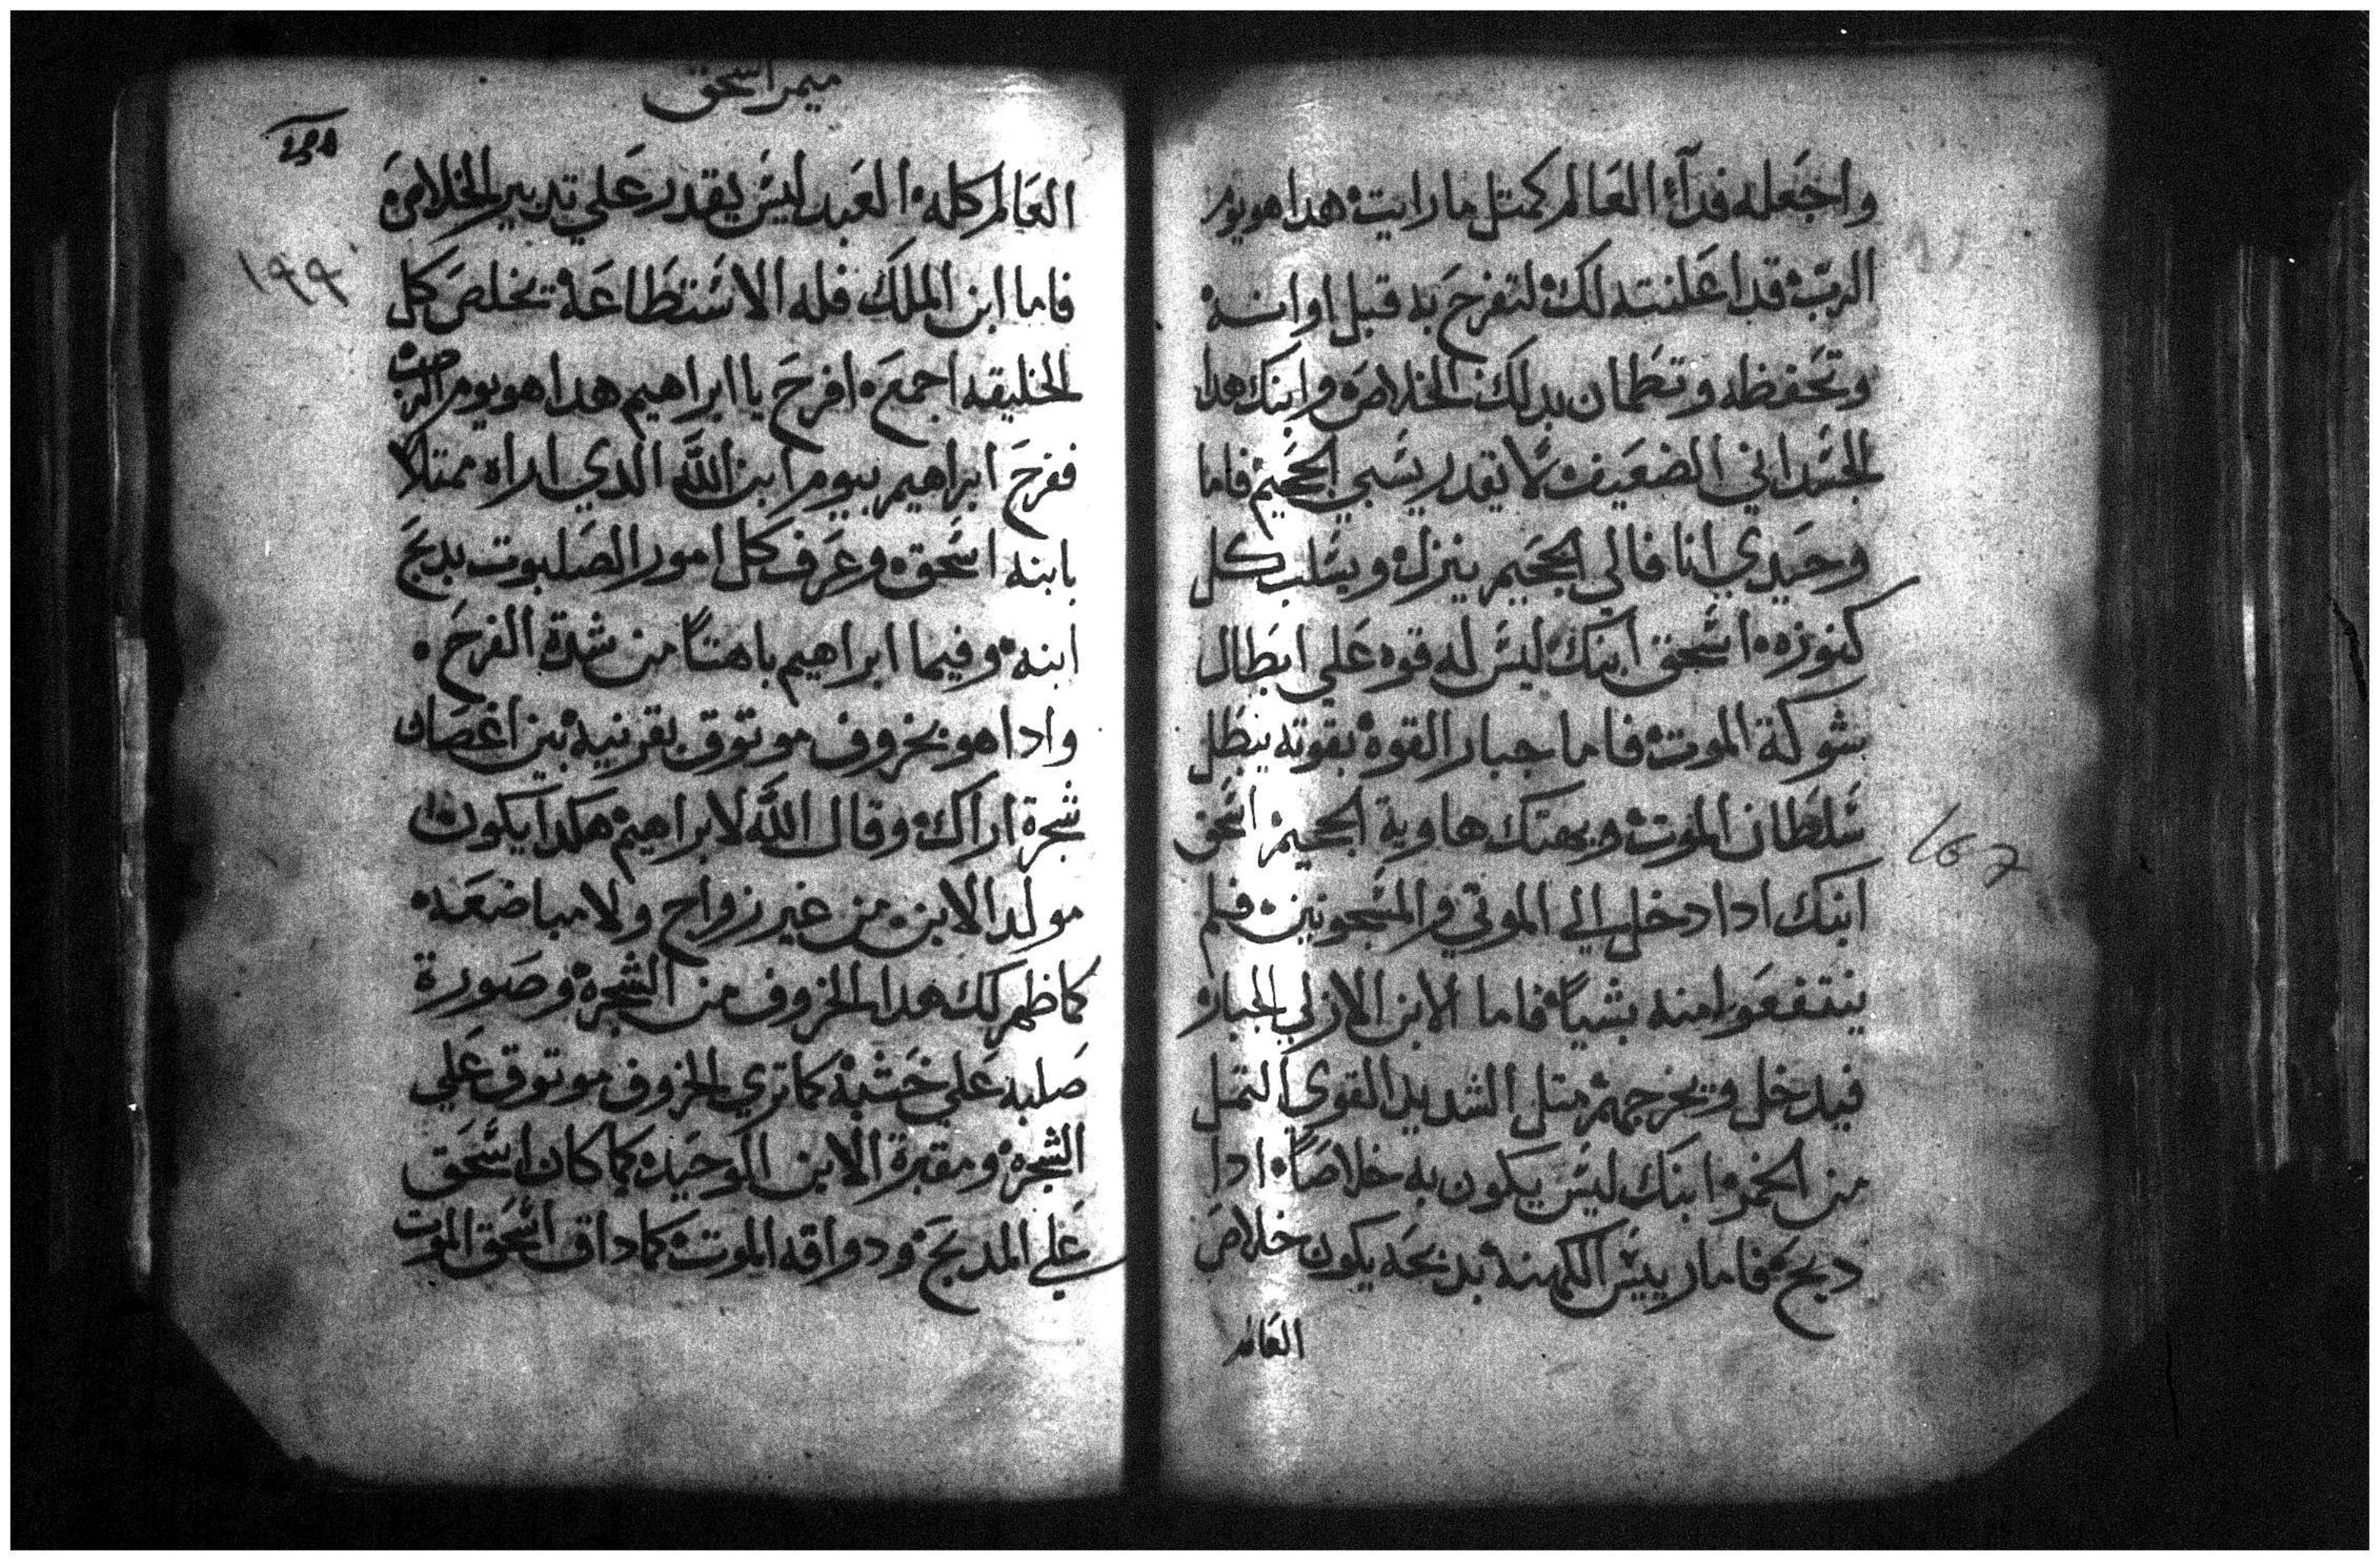 واجعله فدآء العالم كمتل ما رايت هدا هو يوم
الرب قد اعلنته لك لتفرح به قبل اوانه
وتحفظه وتطمان بدلك الخلاص وابنك هدا
الجسداني الضعيف لا يقدر يسبي الجحيم فاما
وحيدي انا فالي الجحيم ينزل ويسلب كل
كنوزه اسحق ابنك ليس له قوه علي ابطال
شوكة الموت فاما جبار القوة بقوته يبطل
سلطان الموت ويهتك هاوية الجحيم اسحق
ابنك ادا دخل الي الموتي والمسجونين فلم
ينتفعوا منه بشياً فاما الابن الازلي الجبار
فيدخل ويخرجهم متل الشديد القوي التمل
من الخمر ابنك ليس يكون به خلاصاً ادا
دبح فاما رييس الكهنة بدبحه يكون خلاص
العالم
ميمر اسحق
١٩٩
العالم كله العبد ليس يقدر علي تدبير الخلاص
فاما ابن الملك فله الاستطاعة يخلص كل
الخليقه اجمع افرح يا ابراهيم هدا هو يوم الرب
ففرح ابراهيم بيوم ابن الله الدي اراه ممتلا
بابنه اسحق وعرف كل امور الصلبوت بدبح
ابنه وفيما ابراهيم باهتاً من شدة الفرح
وادا هو بخروف موتوق بقرنيه بين اغصان
شجرة اراك وقال الله لابراهيم هكدا يكون
مولد الابن من غير زواج ولا مباضعه
كما ظهر لك هدا الخروف من الشجرة وصورة
صلبه علي خشبة كما تري الخروف موتوق علي
الشجرة ومقبرة الابن الوحيد كما كان اسحق
علي المدبح ودواقه الموت كما داق اسحق الموت